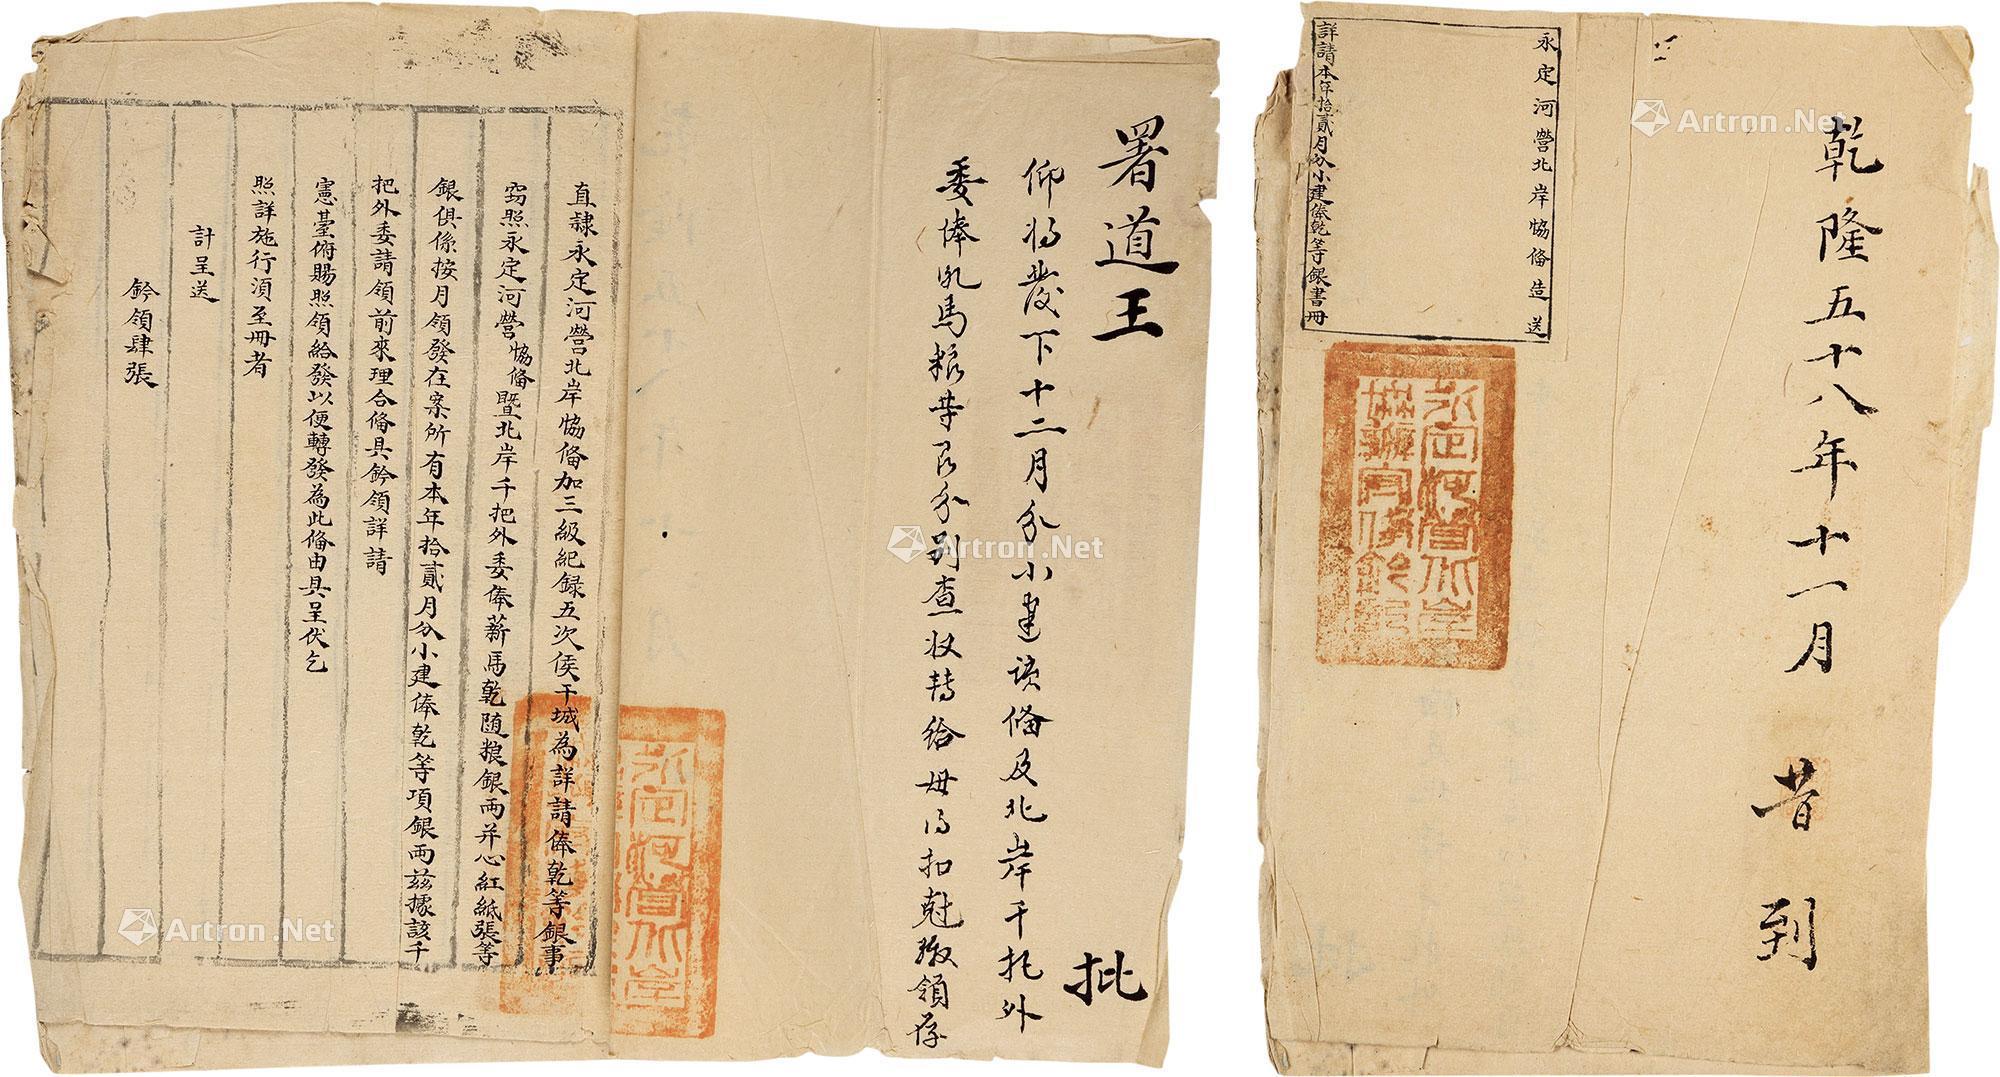 乾隆五十八年十一月
昔到
永定河營北岸協俻造送
詳請本年拾貳月分小建俸乾等銀書冊
署道王
批
仰將發下十二月分小建該俻及北岸千把外
委俸乾馬粮等艮分別查收轉給毋得扣尅繳領存
直隷永定河營北岸協俻加三級紀録五次侯干城為詳請俸乾等銀事
窃照永定河營協俻暨北岸千把外委俸薪馬乾随粮銀両并心紅紙張等
銀俱係按月領發在案所有本年拾貳月分小建俸乾等項銀両兹據該千
把外委請領前來理合俻具鈐領詳請
憲臺俯賜照領給發以便轉發為此俻由具呈伏乞
照詳施行須至冊者
計呈送
鈐領肆張
Artron.Net
Artron.Net
Artron.Net